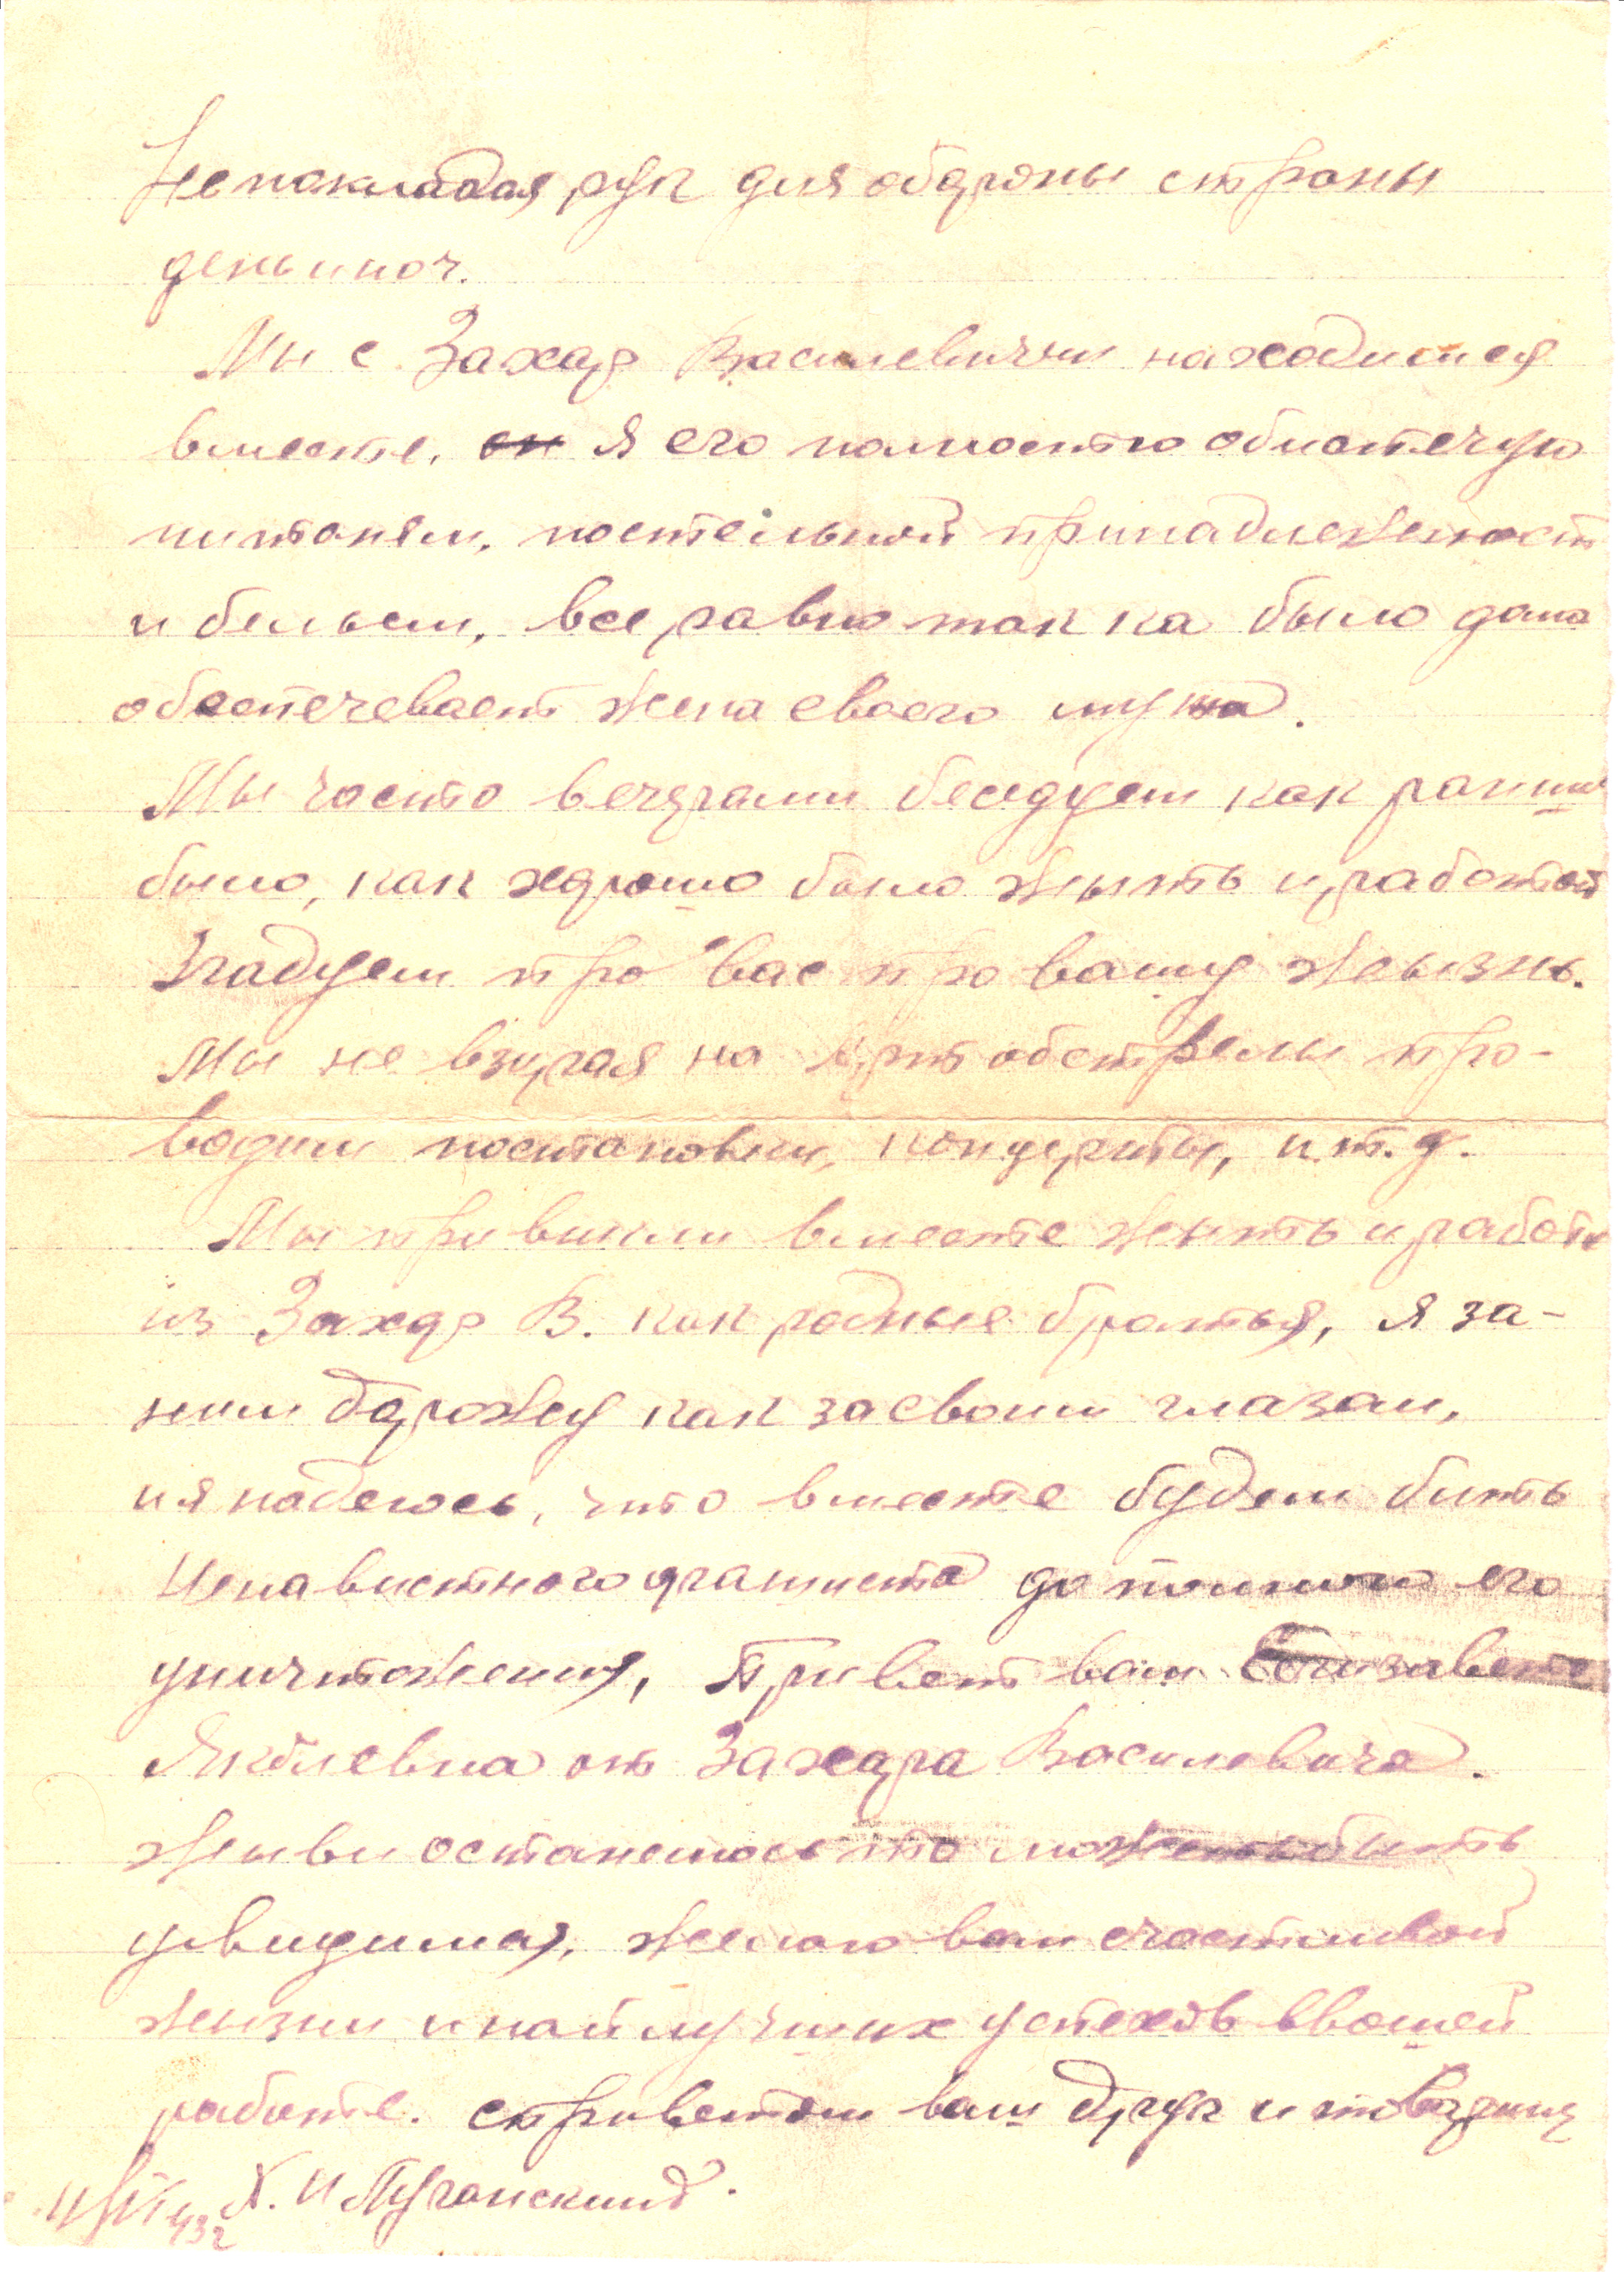 Не покладая рук для обороны страны
день и ноч.
Мы с Захар Василевичим находимся
вместе, он я его полностю обиспечую
питаням, постельной принадлежност
и бельем, все равно так ка было дома
обеспечевает жена своего мужа.
Мы часто вечерами беседуем как раньш
было, как хорошо было жыть и работат
Згадуем про вас про вашу жызнь.
Мы не взирая на арт обстрелы про-
водим постановки, концерты, и т. д.
Мы привыкли вместе жыть и работ
из Захар В. как родные братья, я за-
ним дорожу как за своим глазам,
и я надеюсь, что вместе будем бить
Ненавистного фашиста до полного его
уничтожения, Привет вам Елизавете
Яковлевна от Захара Василевича.
Жыви останемось то может быть
увидимся, желаю вам счастливой
жызни и найлучших успехов в вашей
работе. с приветом ваш друг и товарищ
43г Х. И